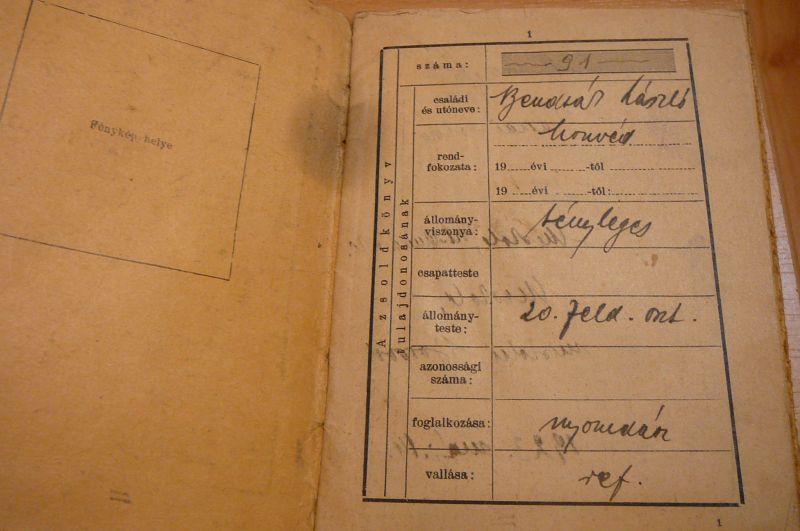 Fénykép helye
1
A zsoldkönyv
tulajdonosának
száma: 91
családi
és utóneve: László
honvéd
rend-
fokozata: 19 évi -től
19 évi -től:
állomány-
viszonya: tényleges
csapatteste
állomány-
teste: 20. Feld. oszt.
azonossági
száma:
foglalkozása: nyomdász
vallása: ref.
1